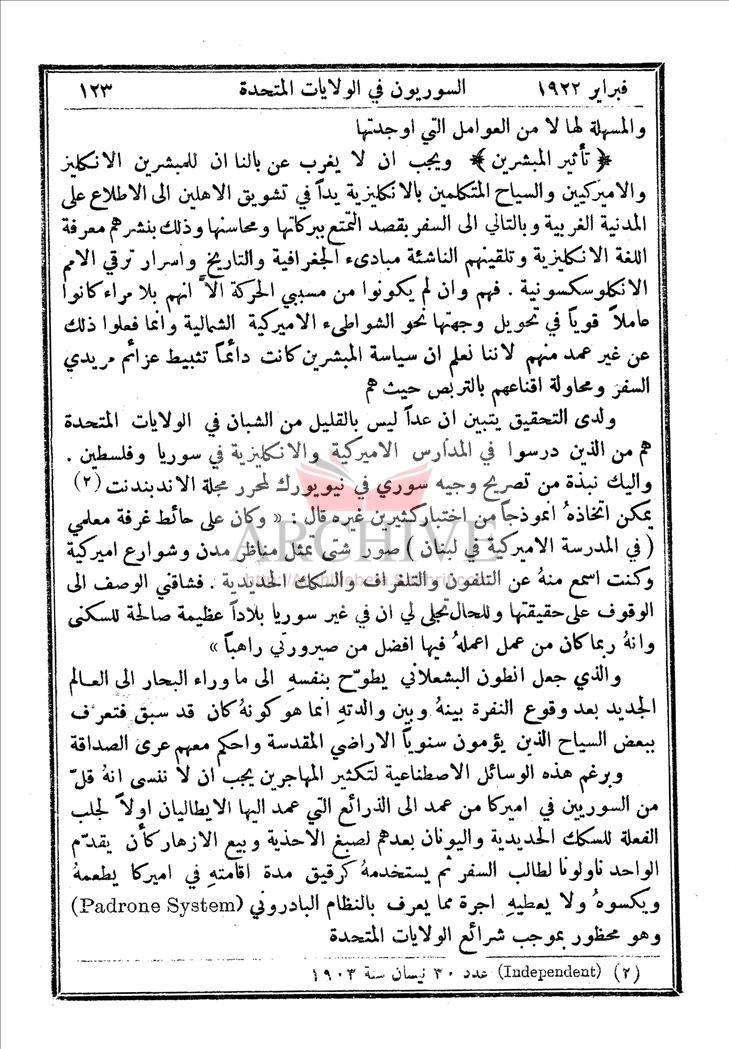 فبراير ١٩٢٢ السوريون في الولايات المتحدة ١٢٣
والمسهلة لها لا من العوامل التي اوجدتها
﴿ تأثير المبشرين ﴾ ويجب ان لا يغرب عن بالنا ان للمبشرين الانكليز
والاميركيين والسياح المتكلمين بالانكليزية يداً في تشويق الاهلين الى الاطلاع على
المدنية الغربية وبالتالي الى السفر بقصد التمتع ببركاتها ومحاسنها وذلك بنشرهم معرفة
اللغة الانكليزية وتلقينهم الناشئة مبادىء الجغرافية والتاريخ واسرار ترقي الامم
الانكلوسكسونية . فهم وان لم يكونوا من مسببي الحركة الاَّ انهم بلا مراء كانوا
عاملاً قوياً في تحويل وجهتها نحو الشواطىء الاميركية الشمالية وانما فعلوا ذلك
عن غير عمد منهم لاننا نعلم ان سياسة المبشرين كانت دائماً تثبيط عزائم مريدي
السفر ومحاولة اقناعهم بالتربص حيث هم
ولدى التحقيق يتبين ان عداً ليس بالقليل من الشبان في الولايات المتحدة
هم من الذين درسوا في المدارس الاميركية والانكليزية في سوريا وفلسطين .
واليك نبذة من تصريح وجيه سوري في نيويورك لمحرر مجلة الاندبندنت (٢)
يمكن اتخاذهُ انموذجاً من اختبار كثيرين غيره قال : « وكان على حائط غرفة معلمي
( في المدرسة الاميركية في لبنان ) صور شتى تمثل مناظر مدن وشوارع اميركية
وكنت اسمع منهُ عن التلفون والتلغراف والسكك الحديدية . فشاقني الوصف الى
الوقوف على حقيقتها وللحال تجلى لي ان في غير سوريا بلاداً عظيمة صالحة للسكنى
وانهُ ربما كان من عمل اعملهُ فيها افضل من صيرورتي راهباً »
والذي جعل انطون البشعلاني يطوّح بنفسهِ الى ما وراء البحار الى العالم
الجديد بعد وقوع النفرة بينهُ وبين والدتهِ انما هو كونهُ كان قد سبق فتعرف
ببعض السياح الذين يؤمون سنوياً الاراضي المقدسة واحكم معهم عرى الصداقة
وبرغم هذه الوسائل الاصطناعية لتكثير المهاجرين يجب ان لا ننسى انهُ قلّ
من السوريين في اميركا من عمد الى الذرائع التي عمد اليها الايطاليان اولاً لجلب
الفعلة للسكك الحديدية واليونان بعدهم لصبغ الاحذية وبيع الازهار كأن يقدّم
الواحد ناولونا لطالب السفر ثم يستخدمهُ كرقيق مدة اقامتهِ في اميركا يطعمهُ
ويكسوهُ ولا يعطيهِ اجرة مما يعرف بالنظام البادروني (Padrone System)
وهو محظور بموجب شرائع الولايات المتحدة
(٢) (Independent) عدد ٣٠ نيسان سنة ١٩٠٣
ARCHIVE